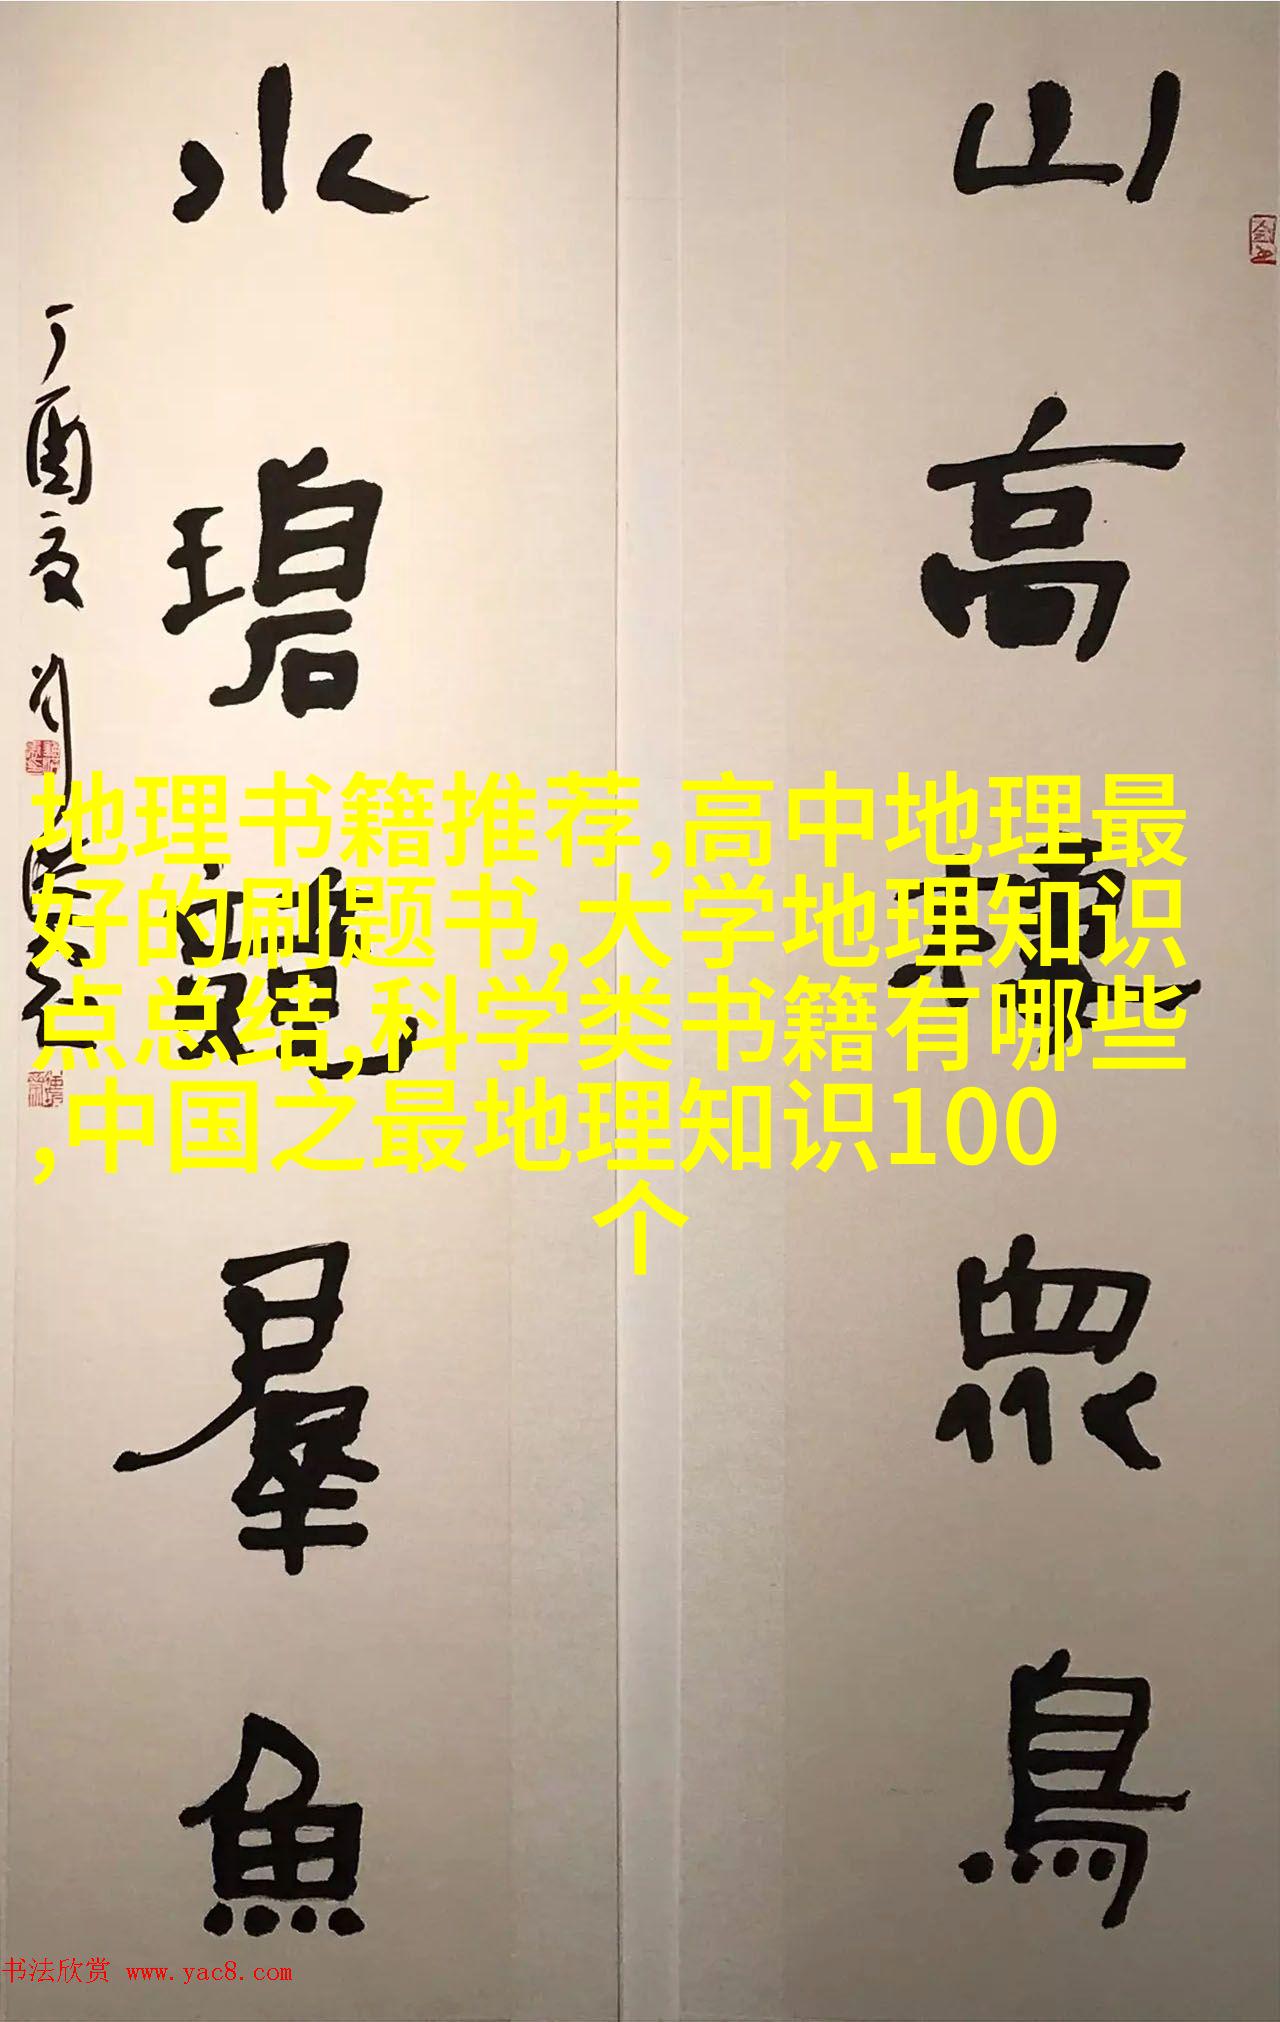 山高棲眾鳥
水碧觀羣魚
丁酉夏 劉
地理书籍推荐,高中地理最
好的刷题书,大学地理知识
点总结,科学类书籍有哪些
,中国之最地理知识100
个
书法欣赏 www.yac8.com